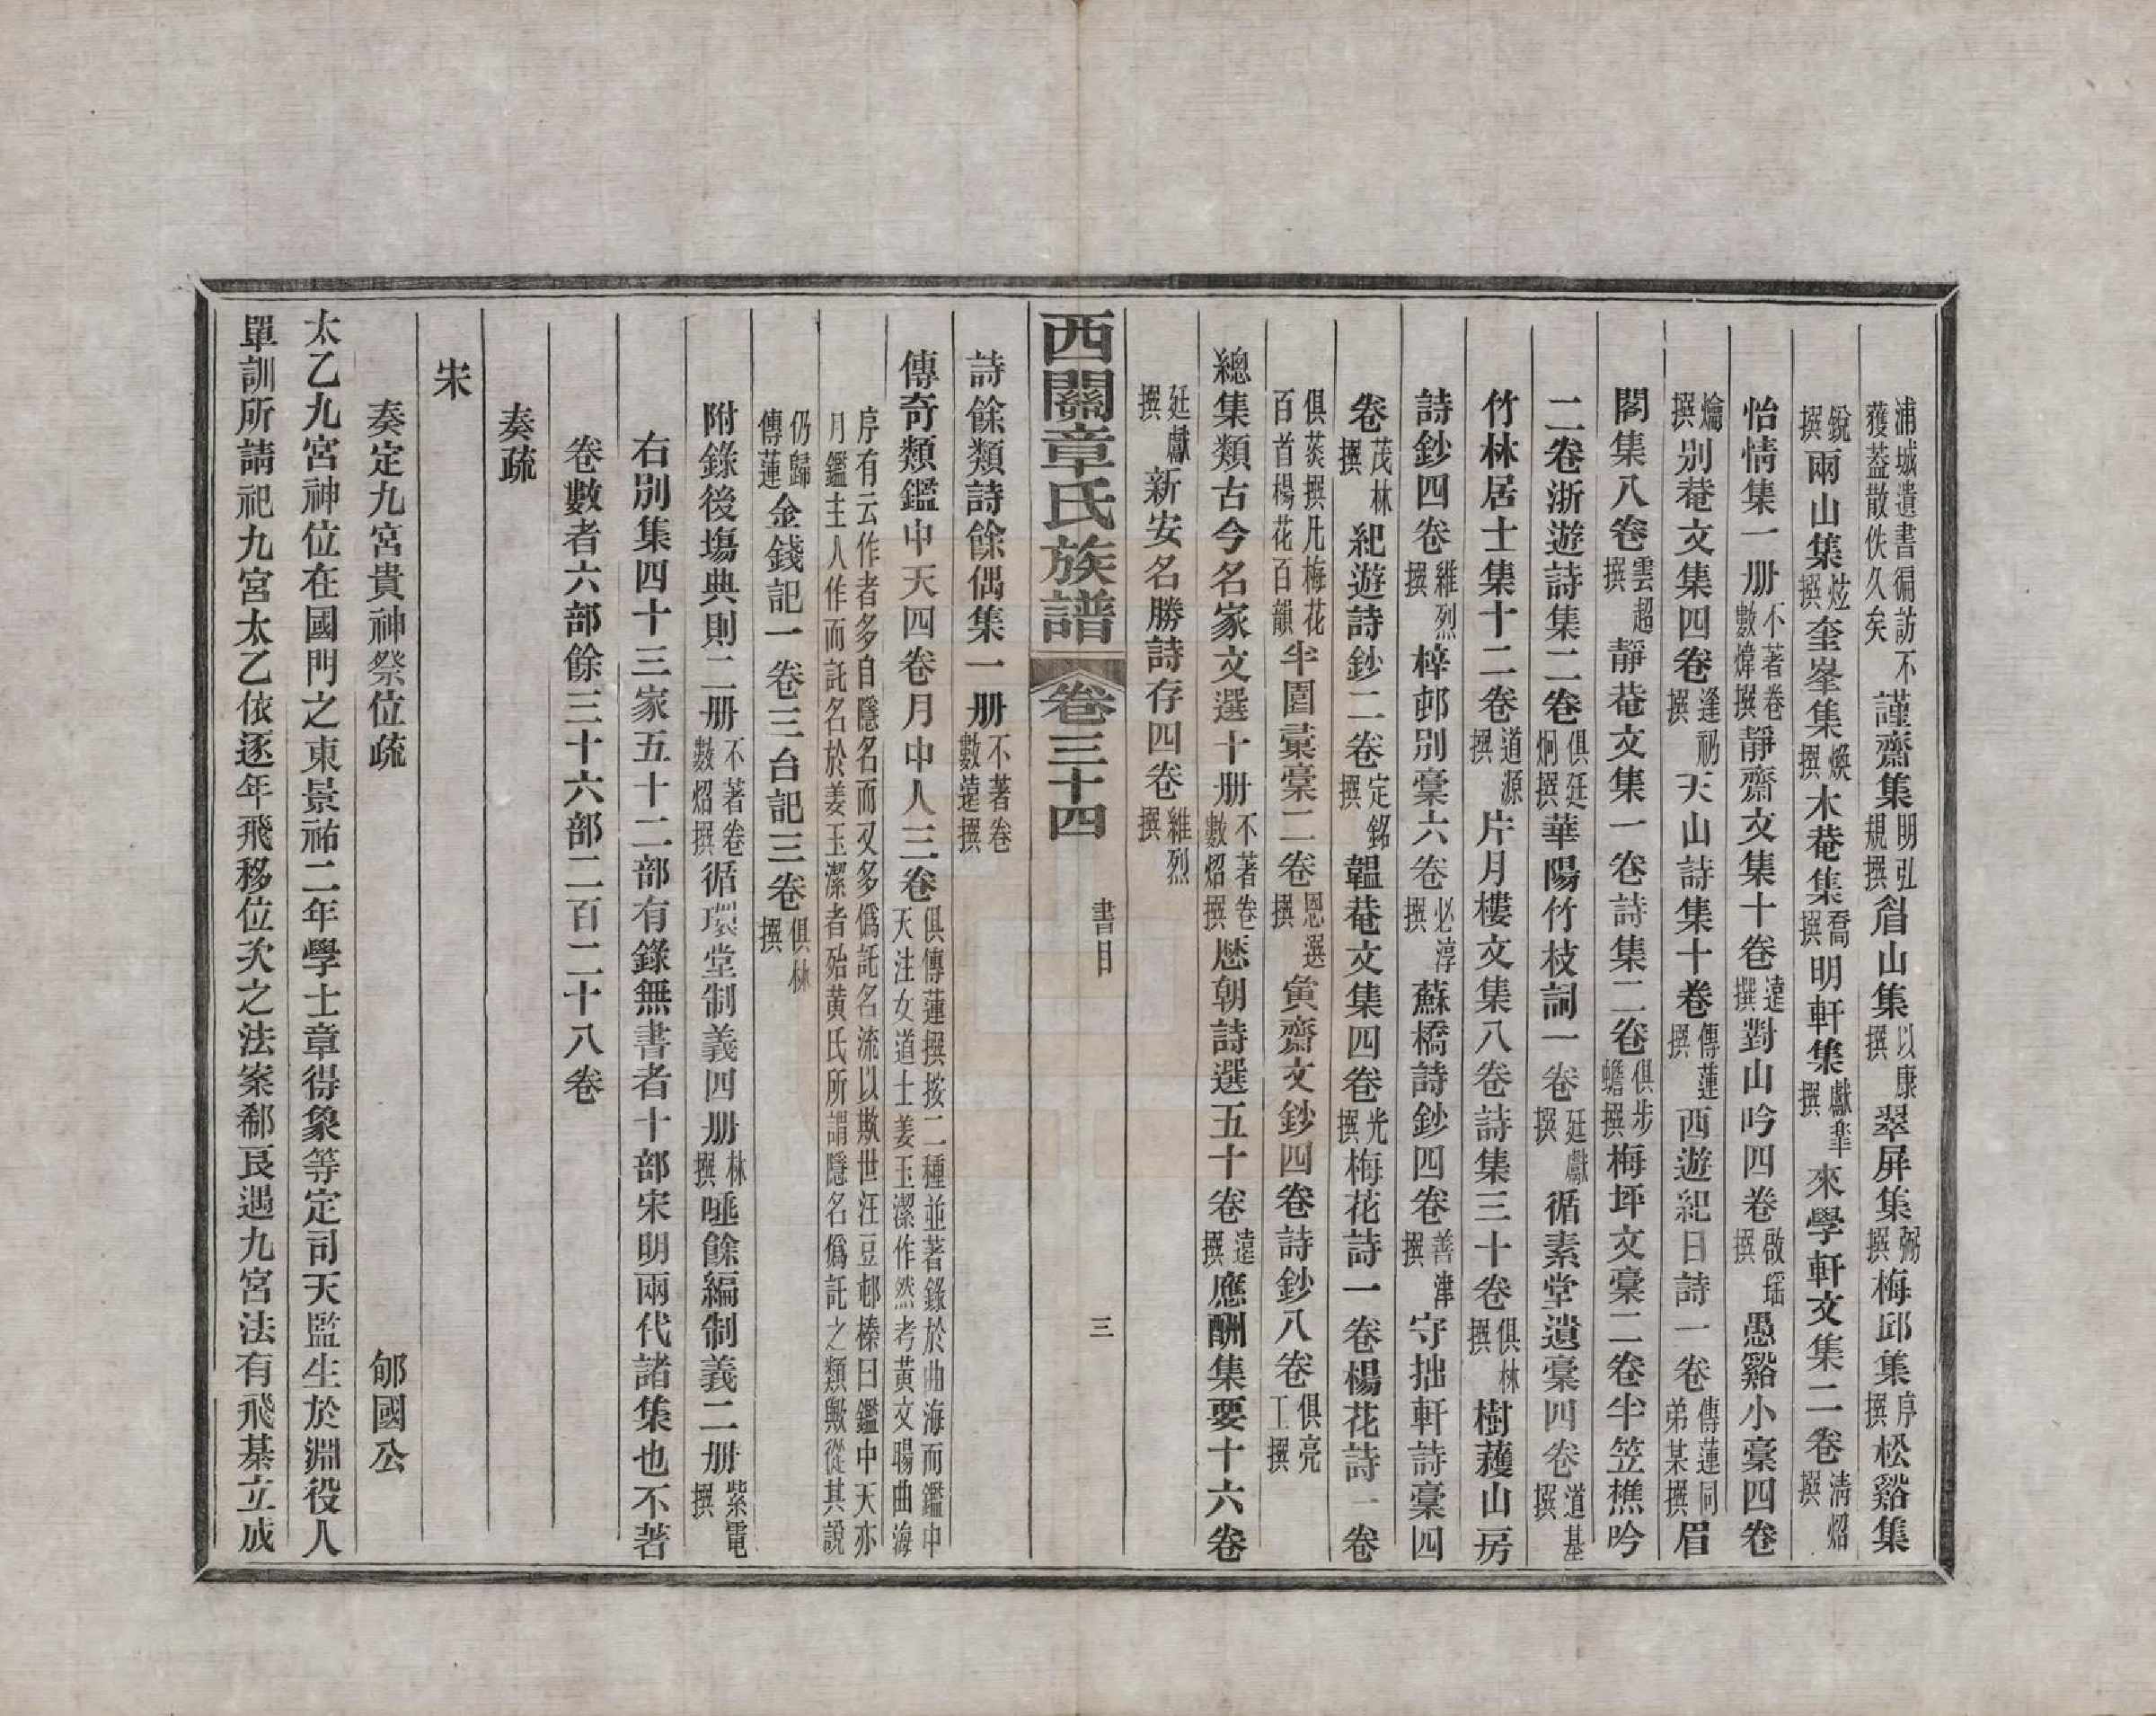 浦城遺書徧訪不獲葢散佚久矣謹齋集明弘規撰眉山集以康撰翠屏集弼撰梅邱集序撰松谿集
銳撰兩山集炫撰奎峯集煥撰木菴集喬撰明軒集獻羋撰來學軒文集二卷淸炤撰
怡情集一册不著卷數煒撰靜齋文集十卷遠撰對山吟四卷啟瑶撰愚谿小稾四卷
爚撰別菴文集四卷逢礽撰天山詩集十卷傳蓮撰西遊紀日詩一卷傳蓮同弟某撰眉
閣集八卷雲超撰靜菴文集一卷詩集二卷俱步蟾撰梅坪文稾二卷半笠樵吟
二卷浙遊詩集二卷俱廷炯撰華陽竹枝詞一卷廷獻撰循素堂遺稾四卷道基撰
竹林居士集十二卷道源撰片月樓文集八卷詩集三十卷俱林撰樹蓷山房
詩鈔四卷維烈撰梓邨別稾六卷必淳撰蘇橋詩鈔四卷善津撰守拙軒詩稾四
卷茂林撰紀遊詩鈔二卷定銘撰韞菴文集四卷光撰梅花詩一卷楊花詩一卷
俱菼撰凡梅花百首楊花百韻半園彚稾二卷恩選撰寅齋文鈔四卷詩鈔八卷俱亮工撰
總集類古今名家文選十册不著卷數炤撰歷朝詩選五十卷遠撰應酬集要十六卷
廷獻撰新安名勝詩存四卷維烈撰
西關章氏族譜 卷三十四 書目 三
詩餘類詩餘偶集一册不著卷數遠撰
傳奇類鑑中天四卷月中人三卷俱傳蓮撰按二種並著錄於曲海而鑑中天注女道士姜玉潔作然考黃文暘曲海
序有云作者多自隱名而又多僞託名流以欺世汪豆邨榛曰鑑中天亦月鑑主人作而託名於姜玉潔者殆黃氏所謂隱名僞託之類歟從其說
仍歸傳蓮金錢記一卷三台記三卷俱林撰
附錄後塲典則二册不著卷數炤撰循環堂制義四册林撰唾餘編制義二册紫電撰
右別集四十三家五十二部有錄無書者十部宋明兩代諸集也不著
卷數者六部餘三十六部二百二十八卷
奏疏
宋
奏定九宮貴神祭位疏 郇國公
太乙九宮神位在國門之東景祐二年學士章得象等定司天監生於淵役人
單訓所請祀九宮太乙依逐年飛移位次之法案郗良遇九宮法有飛棊立成